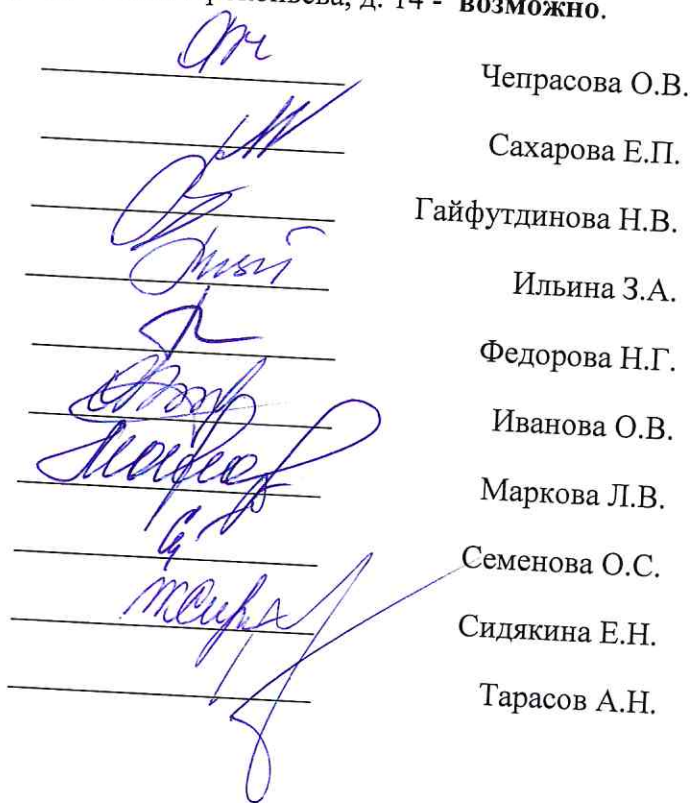 д. 14 - возможно.
Чепрасова О.В.
Сахарова Е.П.
Гайфутдинова Н.В.
Ильина З.А.
Федорова Н.Г.
Иванова О.В.
Маркова Л.В.
Семенова О.С.
Сидякина Е.Н.
Тарасов А.Н.